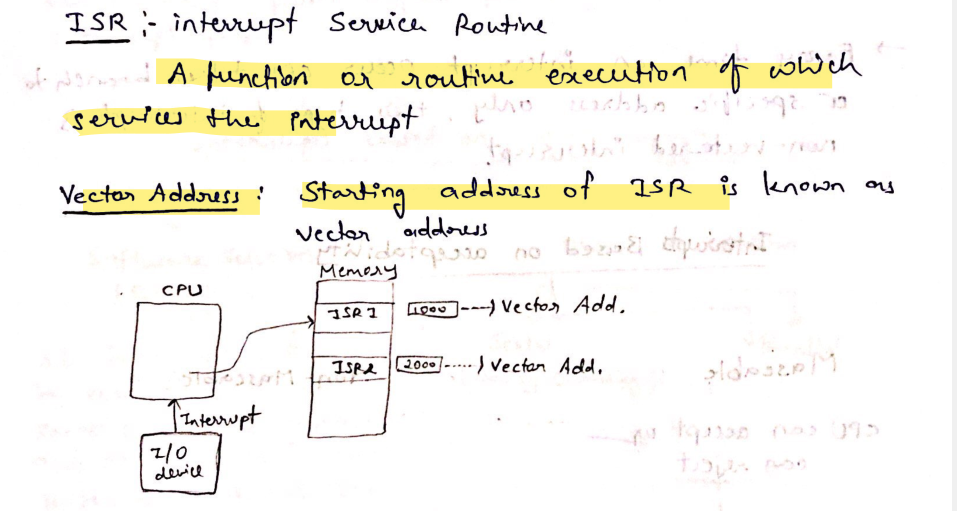 ISR :- interrupt Service Routine
A function or routine execution of which
services the interrupt
Vector Address : Starting address of ISR is known as
vector address
Memory
CPU
ISR 1 1000 ----> Vector Add.
ISR2 2000 ----> Vector Add.
Interrupt
I/O
device